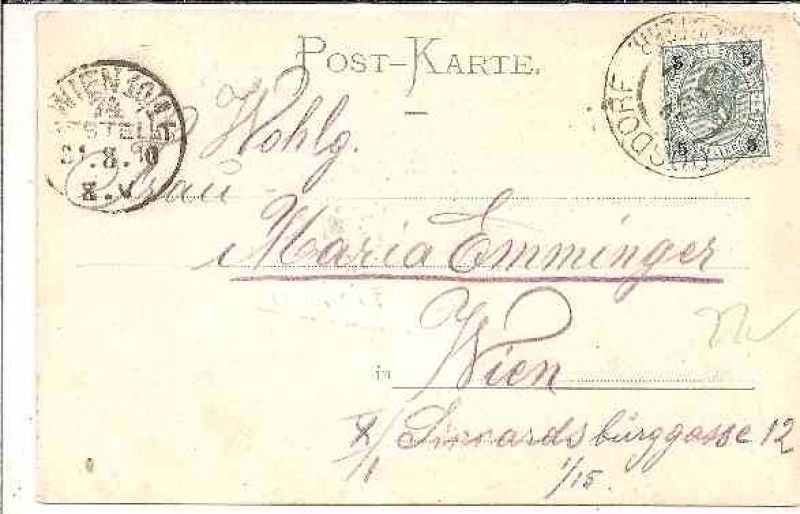 POST-KARTE.
WIEN 10/1
72
BESTELLT
21.8.90
8.V
5 5
5 5
Wohlg.
Frau
Maria Emminger
in Wien
X/1 burggasse 12
1/15.